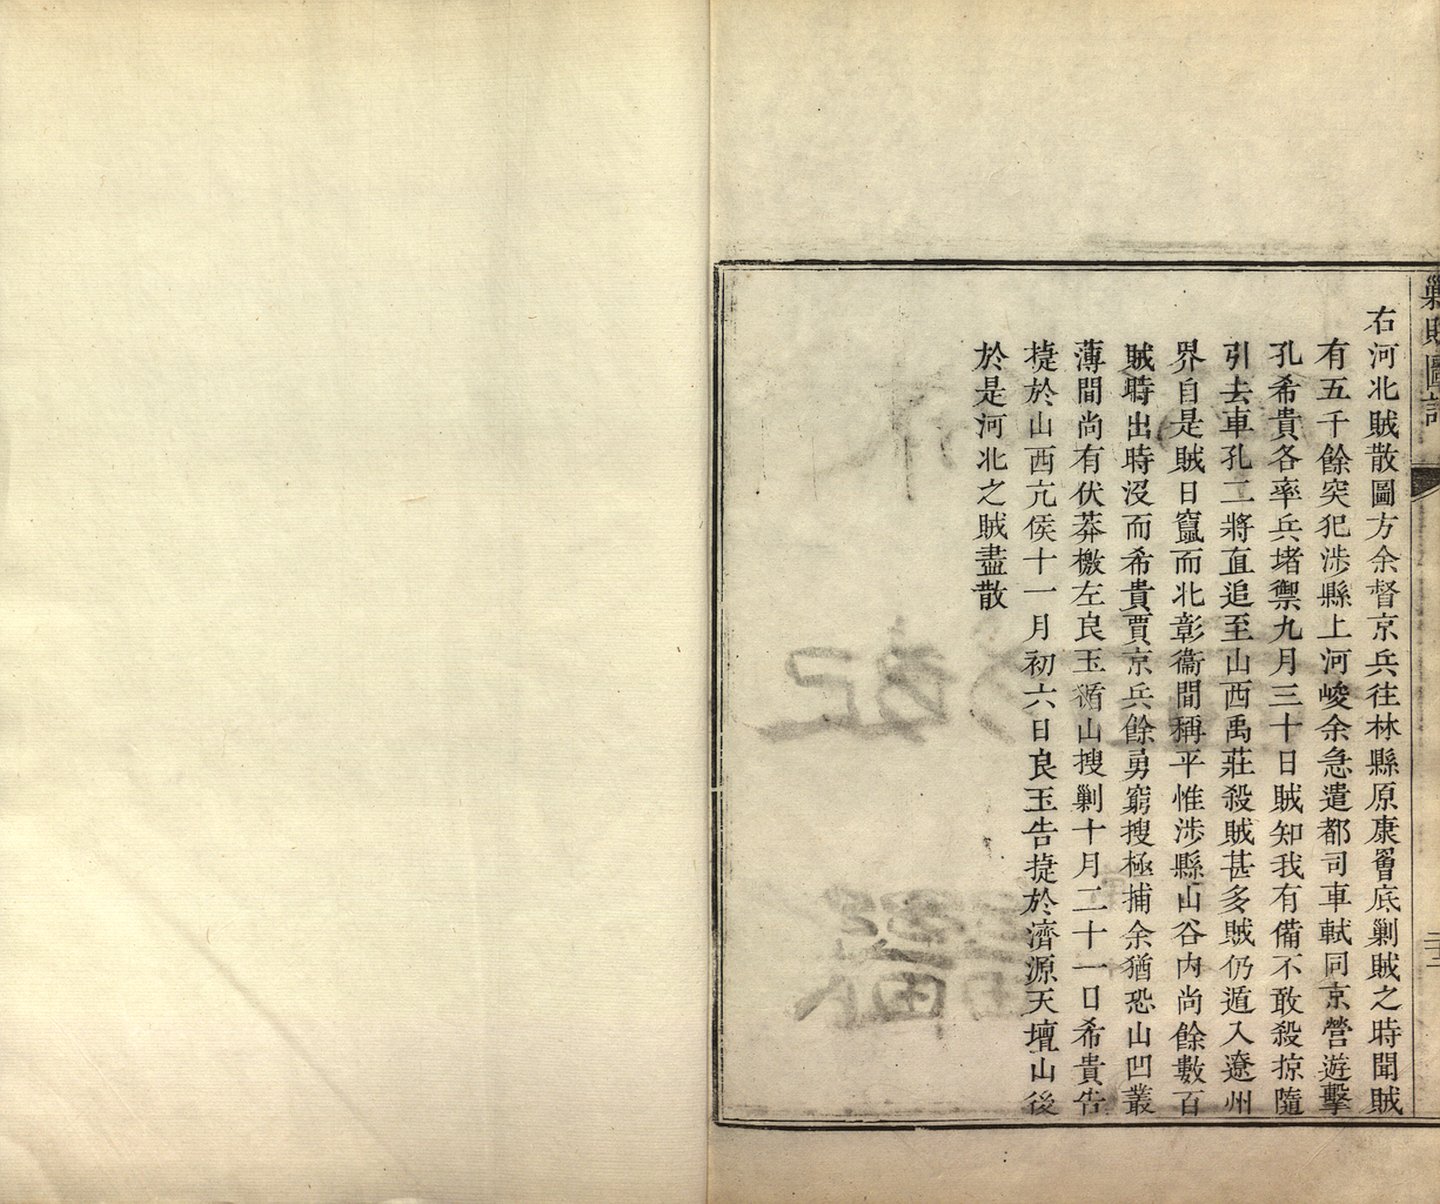 勦賊圖記
右河北賊散圖方余督京兵往林縣原康窨底剿賊之時聞賊
有五千餘突犯涉縣上河峻余急遣都司車軾同京營遊擊
孔希貴各率兵堵禦九月三十日賊知我有備不敢殺掠隨
引去車孔二將直追至山西禹莊殺賊甚多賊仍遁入遼州
界自是賊日竄而北彰衞間稱平惟涉縣山谷內尚餘數百
賊時出時沒而希貴賈京兵餘勇窮搜極捕余猶恐山凹叢
薄間尚有伏莽檄左良玉循山搜剿十月二十一日希貴告
捷於山西亢侯十一月初六日良玉告捷於濟源天壇山後
於是河北之賊盡散